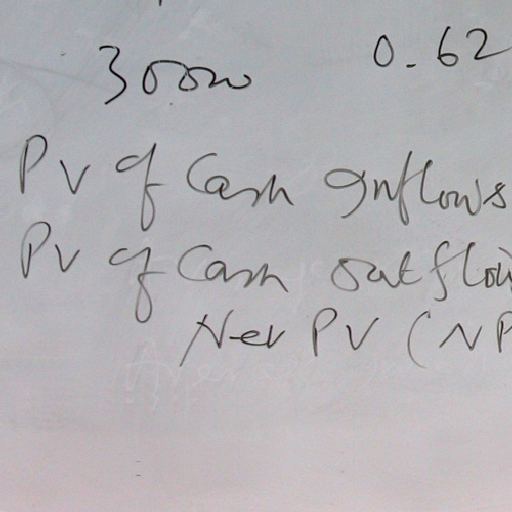 30000 0.62
PV of Cash Inflows
PV of Cash outflow
Net PV (NP